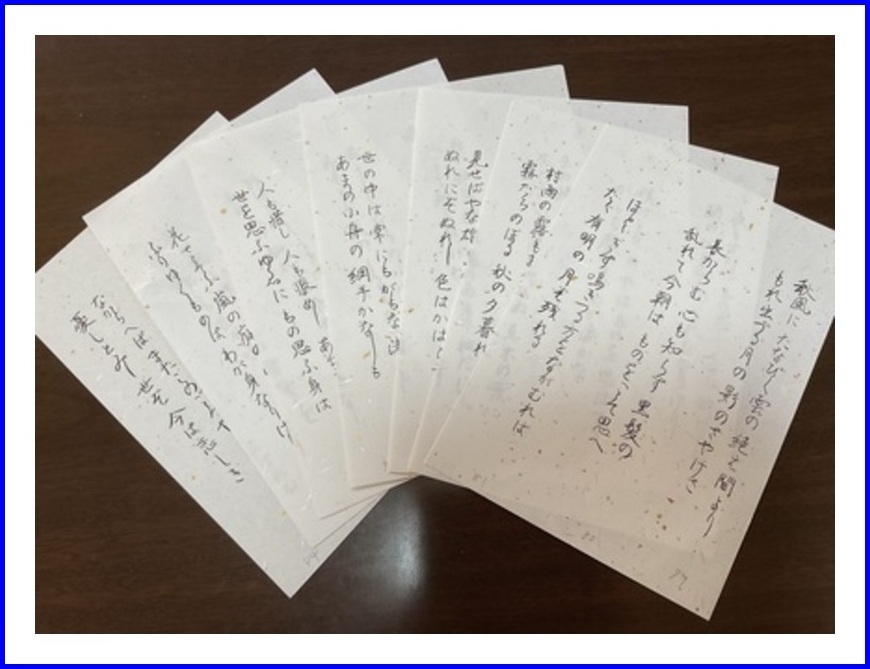 秋風に たなびく雲の 絶え間より
もれ出づる月の 影のさやけさ
79
長からむ 心も知らず 黒髪の
乱れて今朝は ものをこそ思へ
80
ほととぎす 鳴きつる方をながむれば
ただ有明の 月ぞ残れる
81
村雨の 露もま
霧たちのぼる 秋の夕暮れ
見せばやな 雄
ぬれにぞぬれし 色はかはら
世の中は 常にもがもな
あまの小舟の 綱手かなしも
人も惜し 人も恨めし あぢ
世を思ふゆゑに もの思ふ身は
花さそふ 嵐の庭の
ふりゆくものは わが身なりけ
ながらへば またこのごろや
憂しと見し 世ぞ 今は恋しき
84